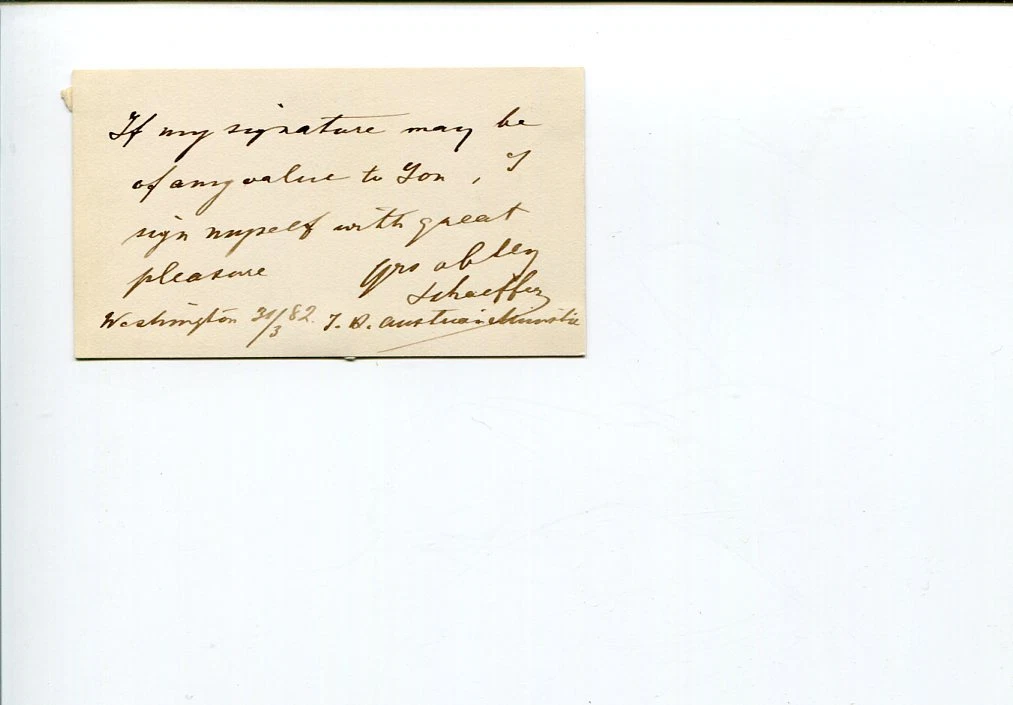 If my signature may be
of any value to You, I
sign myself with great
pleasure
Yrs obtly
Schaeffer
Washington 31/3 82. I. R. Austrian Minister